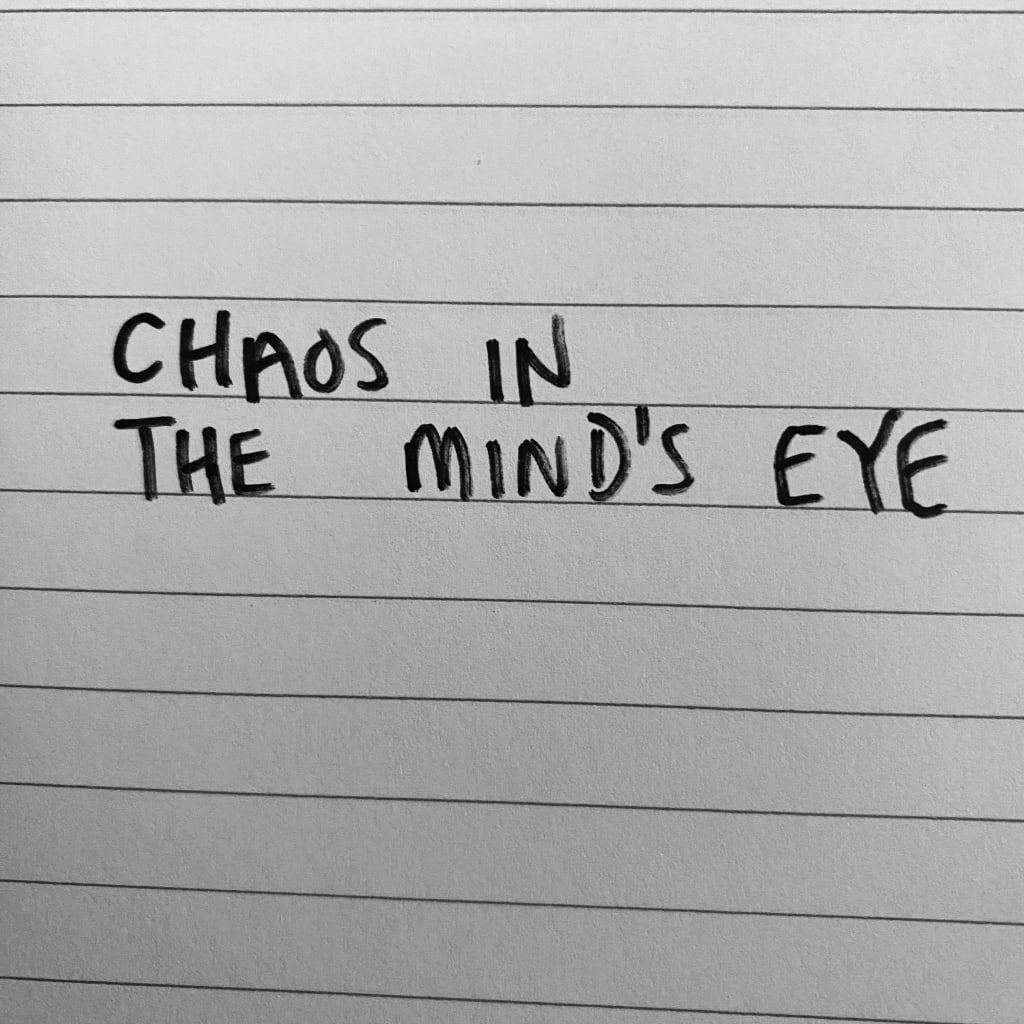 CHAOS IN
THE MIND'S EYE